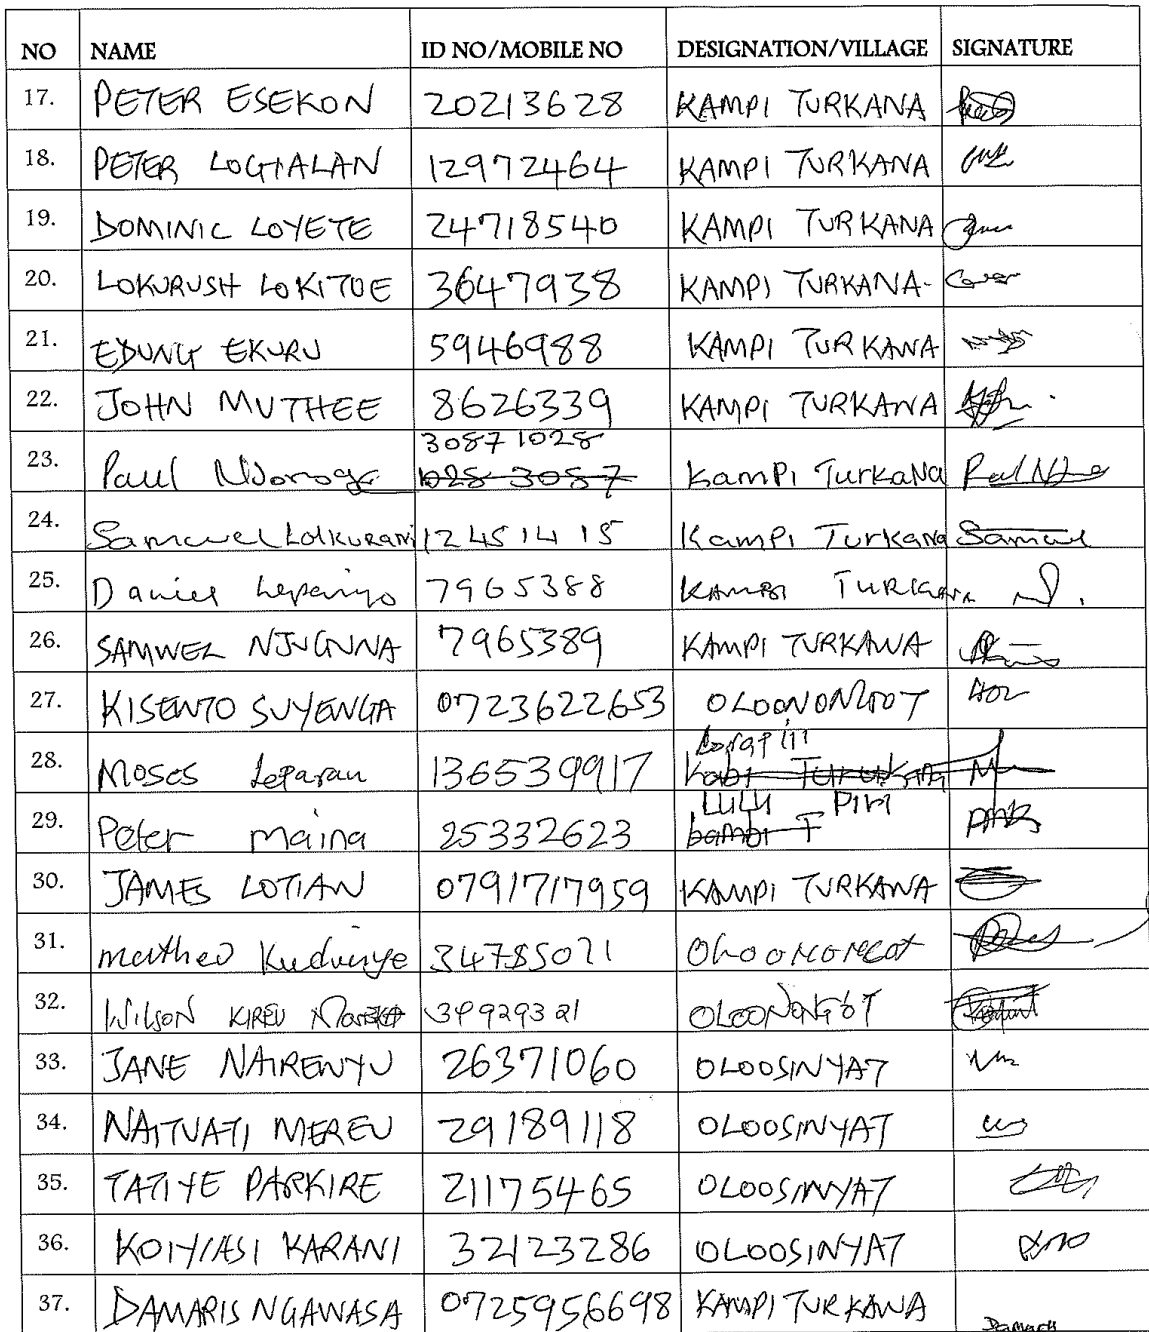 NO NAME ID NO/MOBILE NO DESIGNATION/VILLAGE SIGNATURE
17. PETER ESEKON 20213628 KAMPI TURKANA
18. PETER LOGIALAN 12972464 KAMPI TURKANA
19. DOMINIC LOYETE 24718540 KAMPI TURKANA
20. LOKURUSH LOKITOE 3647938 KAMPI TURKANA-
21. EBUNG EKURU 5946988 KAMPI TURKANA
22. JOHN MUTHEE 8626339 KAMPI TURKANA
30871028
23. Paul Njoroge 028 3087 Kampi Turkana
24. Samwel Lolkurani 12451415 Kampi Turkana Samuel
25. Daniel Lepariyo 7965388 KAMPI TURKANA
26. SAMWEL NJUGUNA 7965389 KAMPI TURKANA
27. KISENTO SUYENGA 0723622653 OLOONONGOT
28. Moses Leparau 136539917 Kabi Turukana
LULU PIPI
29. Peter maina 25332623 bambi T
30. JAMES LOTIAN 0791717959 KAMPI TURKANA
31. matheo 34785071
32. Wilson KIREU 39929321 OLOONONGOT
33. JANE NAIRENYU 26371060 OLOOSINYAT
34. NAITUATI MEREU 29189118 OLOOSINYAT
35. TATIYE PARKIRE 21175465 OLOOSINYAT
36. KOIYIASI KARANI 32123286 OLOOSINYAT
37. DAMARIS NGAWASA 0725956698 KAMPI TURKANA Damaris